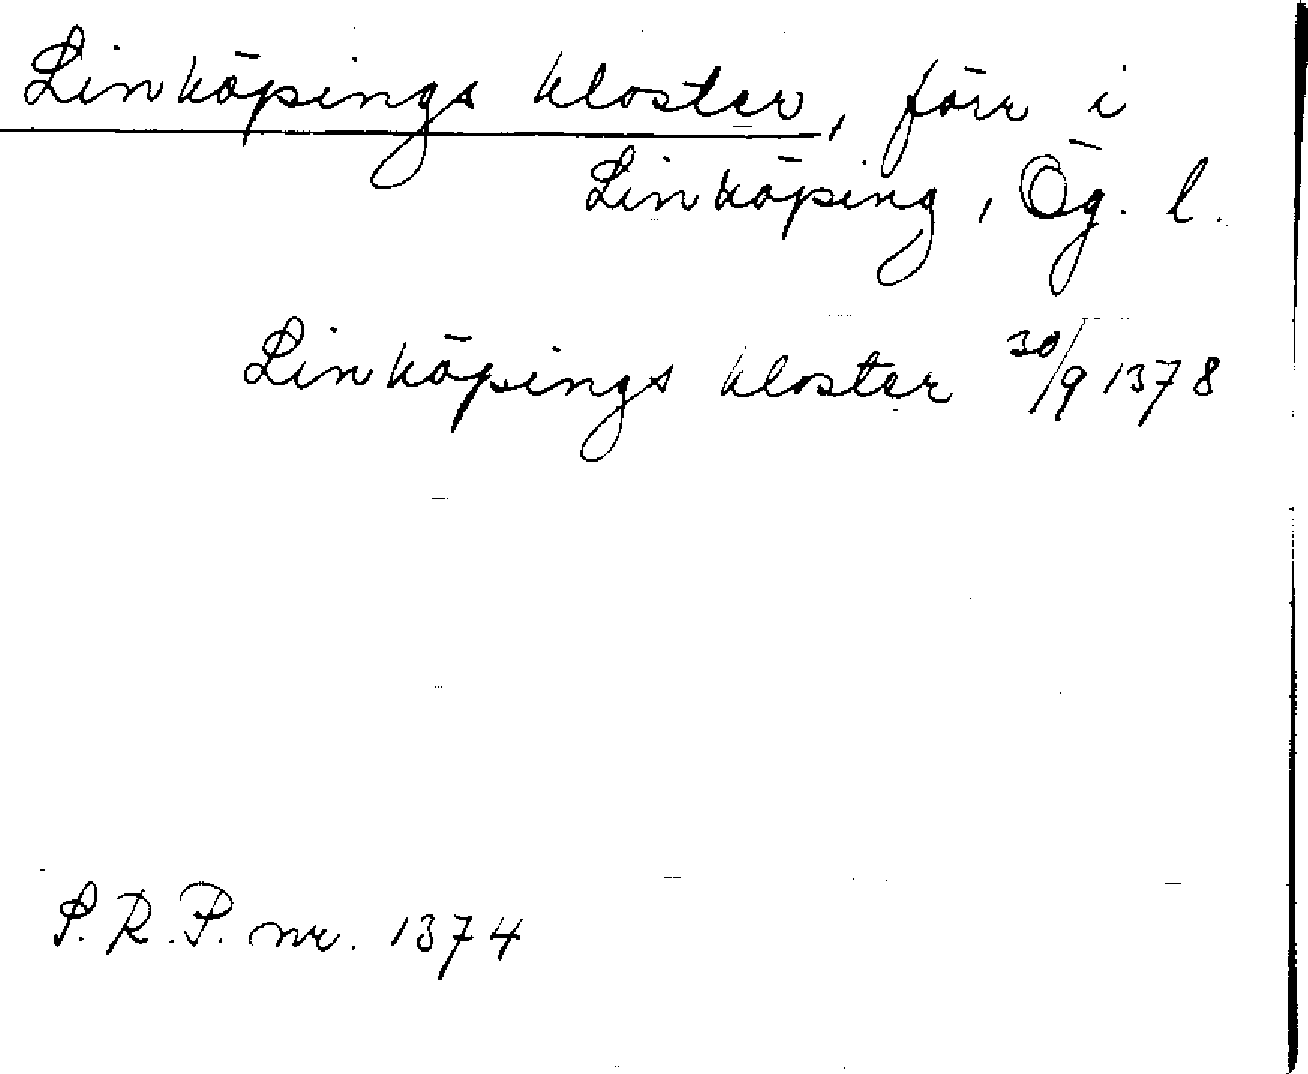 Linköpings kloster, förr i
Linköping, Ög. l.
Linköpings kloster 30/9 1378
S.R.P. nr. 1374